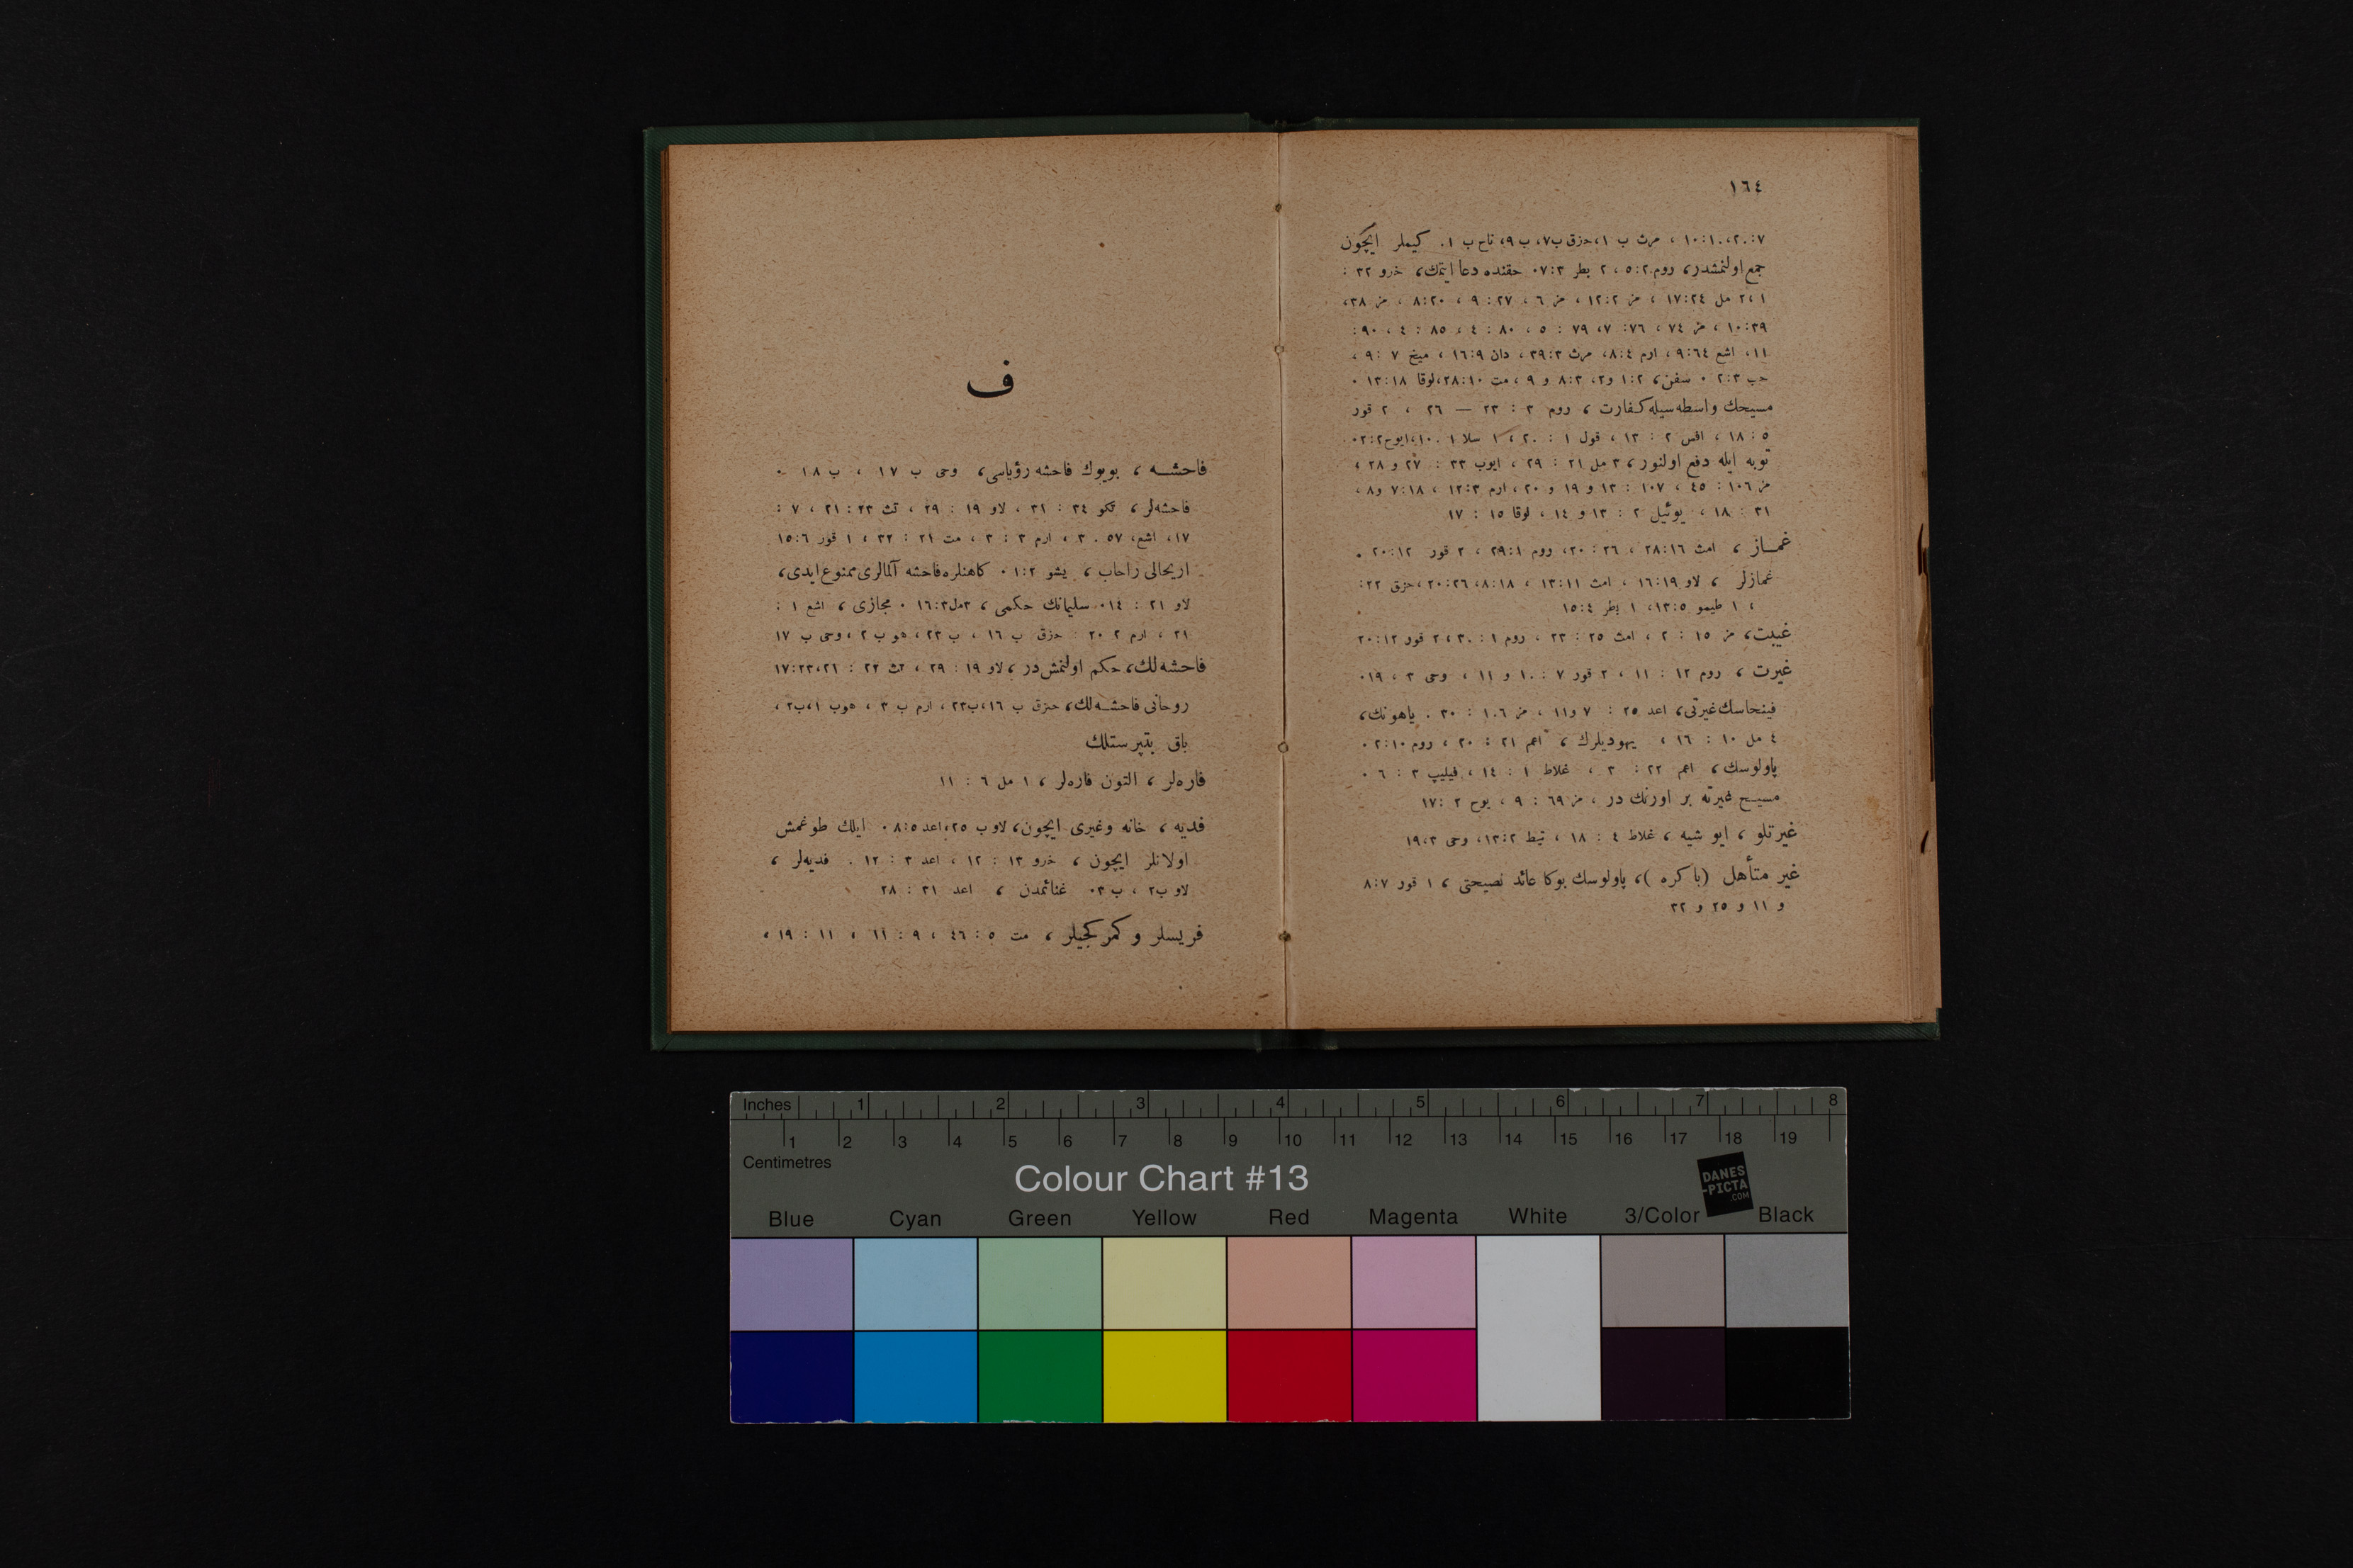 ١٦٤
٢٠:٧، ١٠:١٠، مرث ب ١، حزق ب ٧، ب ٩، ناح ب ١. كيملر ايچون
جمع اولنمشدر، روم ٥:٢، ٢ بطر ٧:٣. حقنده دعا ايتمك، خرو ٣٢ :
١، ٢ مل ١٧:٢٤، مز ١٢:٢، مز ٦، ٩:٢٧، ٨:٢٠، مز ٣٨،
١٠:٣٩، مز ٧٤، ٧:٧٦، ٧٩ : ٥، ٨٠ : ٤، ٨٥ : ٤، ٩٠ :
١١، اشع ٩:٦٤، ارم ٨:٤، مرث ٣٩:٣، دان ١٦:٩، ميخ ٧ : ٩،
حب ٢:٣ . سفن، ١:٢ و٢، ٨:٣ و ٩، مت ٢٨:١٠، لوقا ١٣:١٨ .
مسيحك واسطه‌سيله كفارت، روم ٣ : ٢٣ — ٢٦، ٢ قور
٥ : ١٨، افس ٢ : ١٣، قول ١ : ٢٠، ١ سلا ١٠:١، ١يوح ٢:٢.
توبه ايله دفع اولنور، ٣ مل ٢١ : ٢٩، ايوب ٣٣ : ٢٧ و ٢٨،
مز ١٠٦ : ٤٥، ١٠٧ : ١٣ و ١٩ و ٢٠، ارم ١٢:٣، ٧:١٨ و٨،
٣١ : ١٨، يوئيل ٢ : ١٣ و ١٤، لوقا ١٥ : ١٧
غمــاز، امث ٢٨:١٦، ٢٦ : ٢٠، روم ٢٩:١، ٢ قور ٢٠:١٢ .
غمازلر، لاو ١٦:١٩، امث ١٣:١١، ٨:١٨، ٢٠:٢٦، حزق ٢٢:
، ١ طيمو ١٣:٥، ١ بطر ١٥:٤
غيبت، مز ١٥ : ٢، امث ٢٥ : ٢٣، روم ١ : ٣٠، ٢ قور ٢٠:١٢
غيرت، روم ١٢ : ١١، ٢ قور ٧ : ١٠ و ١١، وحى ٣ ، ١٩.
فينحاسك غيرتى، اعد ٢٥ : ٧ و١١، مز ١٠٦ : ٣٠ . ياهونك،
٤ مل ١٠ : ١٦، يهوديلرك، اعم ٢١ : ٢٠، روم ٢:١٠.
پاولوسك، اعم ٢٢ : ٣، غلاط ١ : ١٤، فيليپ ٣ : ٦ .
مسيح غيرته بر اورنك در، مز ٦٩ : ٩، يوح ٢ : ١٧
غيرتلو، ايو شيه، غلاط ٤ : ١٨، تيط ١٣:٢، وحى ١٩،٣
غير متأهل (باكره)، پاولوسك بوكا عائد نصيحتى، ١ قور ٨:٧
و ١١ و ٢٥ و ٣٢
ف
فاحشــه، بويوك فاحشه رؤياسى، وحى ب ١٧، ب ١٨ .
فاحشه‌لر، تكو ٣٤ : ٣١، لاو ١٩ : ٢٩، تث ٢١:٢٣، ٧ :
١٧، اشع، ٥٧ . ٣، ارم ٣ : ٣، مت ٢١ : ٣٢، ١ قور ١٥:٦
اريحالى راحاب، يشو ١:٢ . كاهنلره فاحشه آلمالرى ممنوع ايدى،
لاو ٢١ : ١٤. سليمانك حكمى، ٣مل ١٦:٣ . مجازى، اشع ١ :
٢١، ارم ٢ ٢٠ : حزق ب ١٦، ب ٢٣، هو ب ٢، وحى ب ١٧
فاحشه‌لك، حكم اولنمش‌در، لاو ١٩ : ٢٩، تث ٢٢ : ٢١، ١٧:٢٣
روحانى فاحشــه‌لك، حزق ب ١٦، ب ٢٣، ارم ب ٣، هو ب ١، ب ٢،
باق بتپرستلك
فاره‌لر، التون فاره‌لر، ١ مل ٦ : ١١
فديه، خانه وغيرى ايچون، لاو ب ٢٥، اعد ٨:٥ . ايلك طوغمش
اولانلر ايچون، خرو ١٣ : ١٢، اعد ٣ : ١٢ . فديه‌لر،
لاو ب ٢، ب ٣. غنائمدن، اعد ٣١ : ٢٨
فريسلر و كمركجيلر، مت ٥ : ٤٦، ٩ : ١١، ١١ : ١٩،
Inches 1 2 3 4 5 6 7 8
1 2 3 4 5 6 7 8 9 10 11 12 13 14 15 16 17 18 19
Centimetres
Colour Chart #13
DANES
-PICTA
.COM
Blue Cyan Green Yellow Red Magenta White 3/Color Black